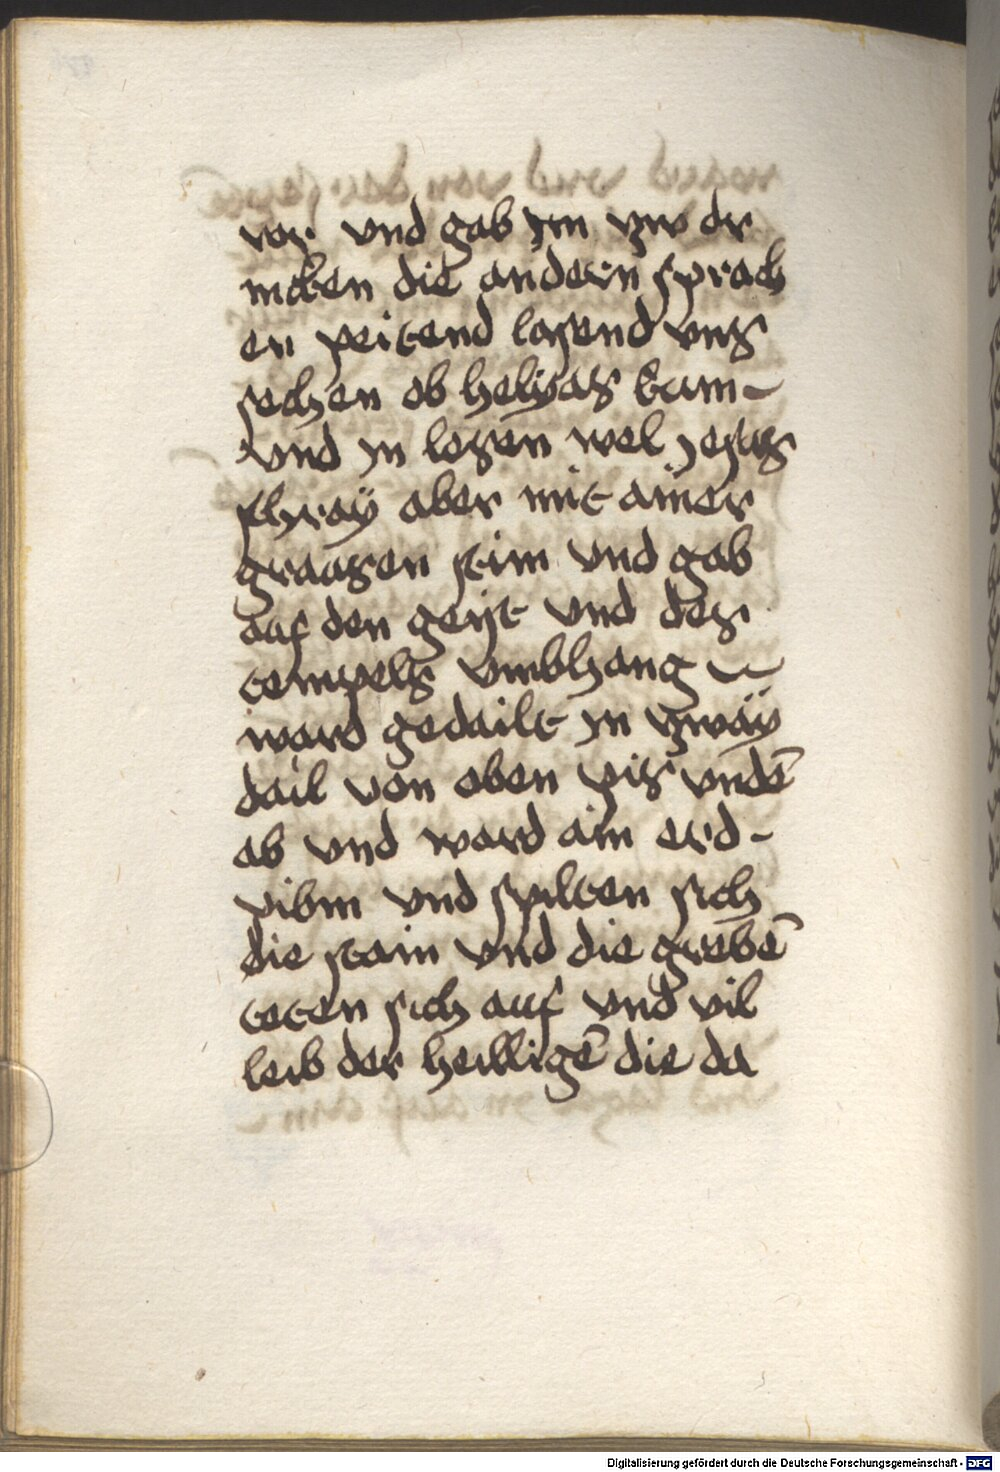 ror und gab ym zw dr
incken die andern sprach
en peitend lasend uns
sechen ob helyas kum
und yn lesen wel Jesus
schray aber mit ainer
graasen stim und gab
auf den geist und des
tempels umbhang
ward gedailt yn zway
dail von oben pis undē
ab und ward ain erd-
pibm und spilten sich
die stain und die grebē
teten sich auf und vil
leib der heilligē die da
Digitalisierung gefördert durch die Deutsche Forschungsgemeinschaft - DFG